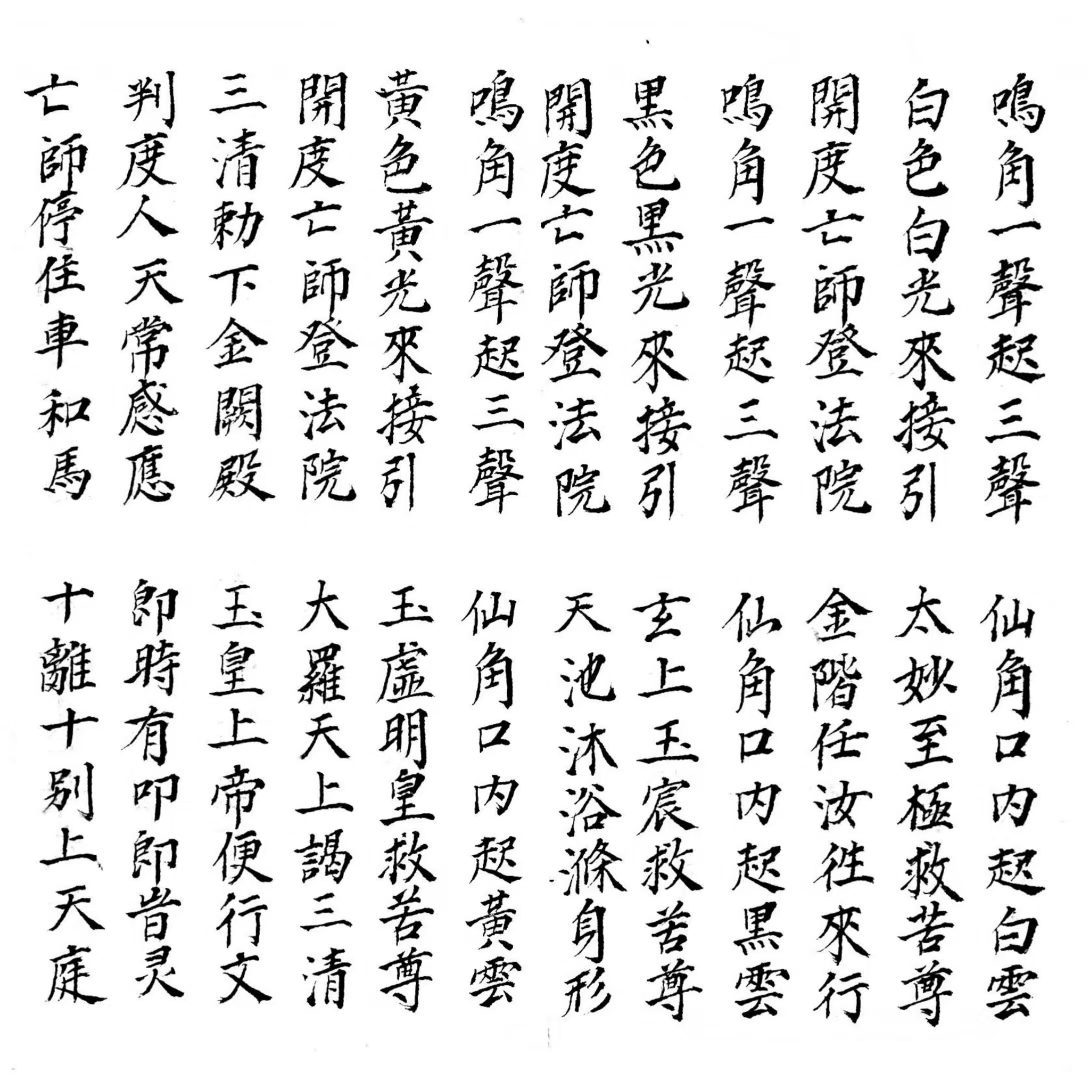 鳴角一聲起三聲　仙角口内起白雲
白色白光來接引　太妙至極救苦尊
開度亡師登法院　金階任汝徃來行
鳴角一聲起三聲　仙角口内起黒雲
黒色黒光來接引　玄上玉宸救苦尊
開度亡師登法院　天池沐浴滌身形
鳴角一聲起三聲　仙角口内起黃雲
黃色黃光來接引　玉虛明皇救苦尊
開度亡師登法院　大羅天上謁三清
三清勅下金闕殿　玉皇上帝便行文
判度人天常感應　即時有叩即皆灵
亡師停住車和馬　十離十别上天庭